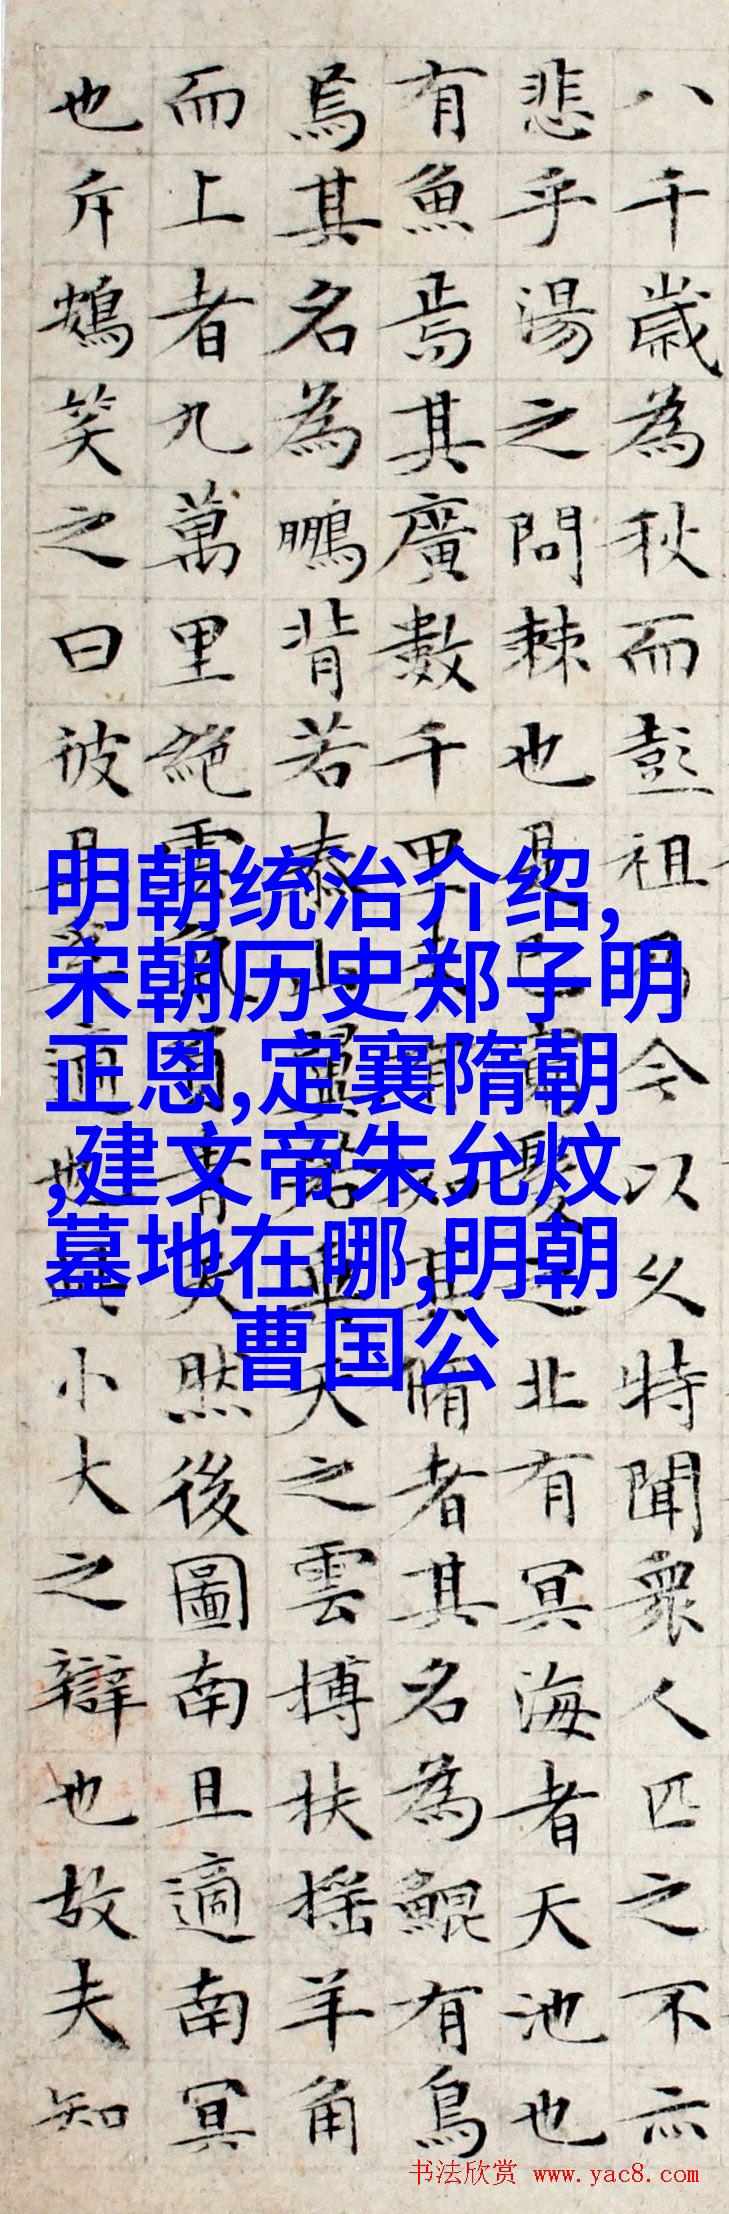 八千歲為秋而彭祖乃今以久特聞衆人匹之不亦
悲乎湯之問棘也是已窮髮之北有冥海者天池也
有魚焉其廣數千里未有知其脩者其名為鯤有鳥
焉其名為鵬背若泰山翼若垂天之雲搏扶摇羊角
而上者九萬里絕雲氣負青天然後圖南且適南冥
也斥鴳笑之曰彼且奚適也此小大之辯也故夫知
明朝统治介绍,
宋朝历史郑子明
正恩,定襄隋朝
,建文帝朱允炆
墓地在哪,明朝
曹国公
书法欣赏 www.yac8.com